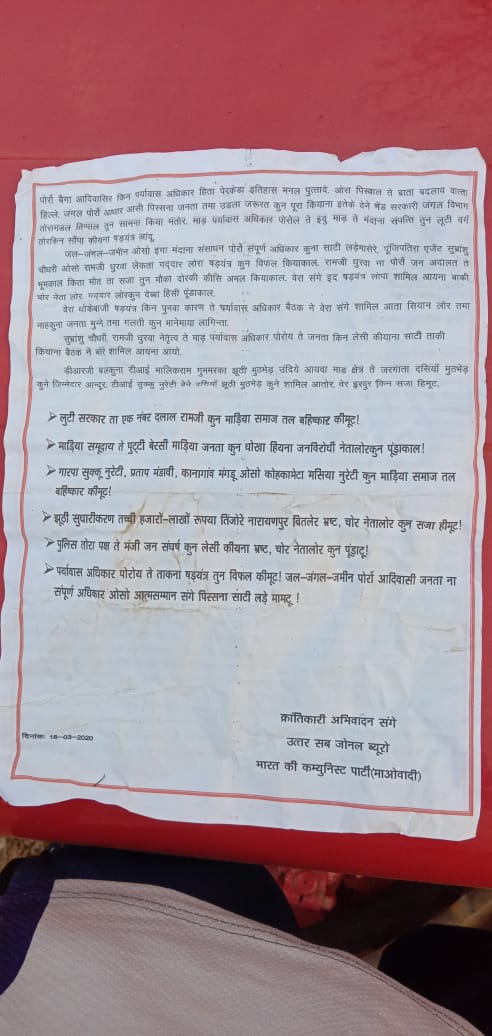 पोर्रो बैगा आदिवासिर किन पर्यावास अधिकार हिता पेरकेडा इतिहास मनल पुत्तादे. ओरा पिस्वाल ते बाता बदलाव वात्ता
हिल्ले. जंगल पोर्रो आधार आसी पिस्सना जनता तमा उडला जरूरत कुन पूरा कियाना इतेके वेने षेंड सरकारी जंगल विभाग
तोरागडल तिप्पाल तुन सामना किया मंतोर. माड़ पर्यावास अधिकार पोरोल ते इदु माड़ ते मंदाना संपत्ति तुन लूटी वर्ग
तोरकिन सौंपा कीयना षड़यंत्र आंदू.
जल-जंगल-जमीन ओसो इगा मंदाना संसाधन पोर्रो संपूर्ण अधिकार कुना साटी लड़ेमासेरे, पूंजिपतिरा एजेंट सुभ्रांशु
चौधरी ओसो रामजी धुरवा लेकता गद्दार लोरा षड़यंत्र कुन विफल कियाकाल. रामजी धुरवा ना पोर्रो जन अदालत ते
भूमकाल किता मौत ता सजा तुन मौका दोरकी कीसि अमल कियाकाल. वेरा संगे इद षड़यंत्र लोपा शामिल आयना बाकी
चोर नेता लोर, गद्दार लोरकुन देब्बा हिसी पूंडाकाल.
वेरा धोकेबाजी षड़यंत्र किन पुनवा कारण ते पर्यावास अधिकार बैठक ने वेरा संगे शामिल आता सियान लोर तमा
नाहकुना जनता मुन्ने तमा गलती कुन मानेमाया लागिन्ता.
सुभ्रांशु चौधरी, रामजी धुरवा नेतृत्व ते माड़ पर्यावास अधिकार पोरोय ते जनता किन लेसी कीयाना साटी ताकी
कियाना बैठक ने बोरे शामिल आयना आयो.
डीआरजी बतकुना टीआई मालिकराम गुममरका झूठी मुठभेड़ उंदिये आयवा माड क्षेत्र ते जरगाता दसियों मुठभेड़
कुने जिम्मेदार आन्दूर. टीआई सुक्कू नुरेटी वेने दसियों झूठी मुठभेड़ कुने शामिल आतोर. वेर इरवुर किन सजा हिमूट.
➢ लुटी सरकार ता एक नंबर दलाल रामजी कुन माड़िया समाज तल बहिष्कार कीमूट!
➢ माड़िया समूदाय ते पुट्टी बेरसी माड़िया जनता कुन धोखा हियना जनविरोधी नेतालोरकुन पूंडाकाल!
➢ गारपा सुक्कू नुरेटी, प्रताप मंडावी, कानागांव मंगडू ओसो कोहकामेटा मसिया नुरेटी कुन माड़िया समाज तल
बहिष्कार कीमूट!
➢ झूठी सुधारीकरण तच्ची हजारों-लाखों रूपया तिंजोरे नारायणपुर बितलेर भ्रष्ट, चोर नेतालोर कुन सजा हीमूट!
➢ पुलिस तोरा पक्ष ते मंजी जन संघर्ष कुन लेसी कीयना भ्रष्ट, चोर नेतालोर कुन पूंडाटू!
➢ पर्यावास अधिकार पोरोय ते ताकना षड़यंत्र तुन विफल कीमूट! जल-जंगल-जमीन पोर्रो आदिवासी जनता ना
संपूर्ण अधिकार ओसो आत्मसम्मान संगे पिस्सना साटी लड़े मामटू !
क्रांतिकारी अभिवादन संगे
दिनांकः 18-03-2020
उत्तर सब जोनल ब्यूरो
भारत की कम्युनिस्ट पार्टी(माओवादी)